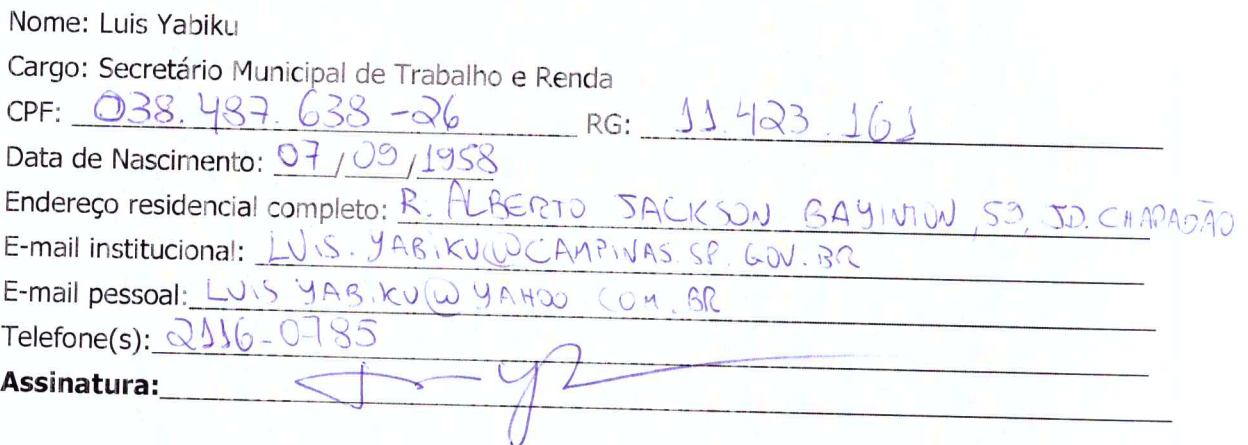 Nome: Luis Yabiku
Cargo: Secretário Municipal de Trabalho e Renda
CPF: 038.487.638-26 RG: 11.423.161
Data de Nascimento: 07/09/1958
Endereço residencial completo: R. ALBERTO JACKSON BAYINTON, 59, JD. CHAPADÃO
E-mail institucional: LUIS.YABIKU@CAMPINAS.SP.GOV.BR
E-mail pessoal: LUIS YABIKU@YAHOO.COM.BR
Telefone(s): 2116-0785
Assinatura: